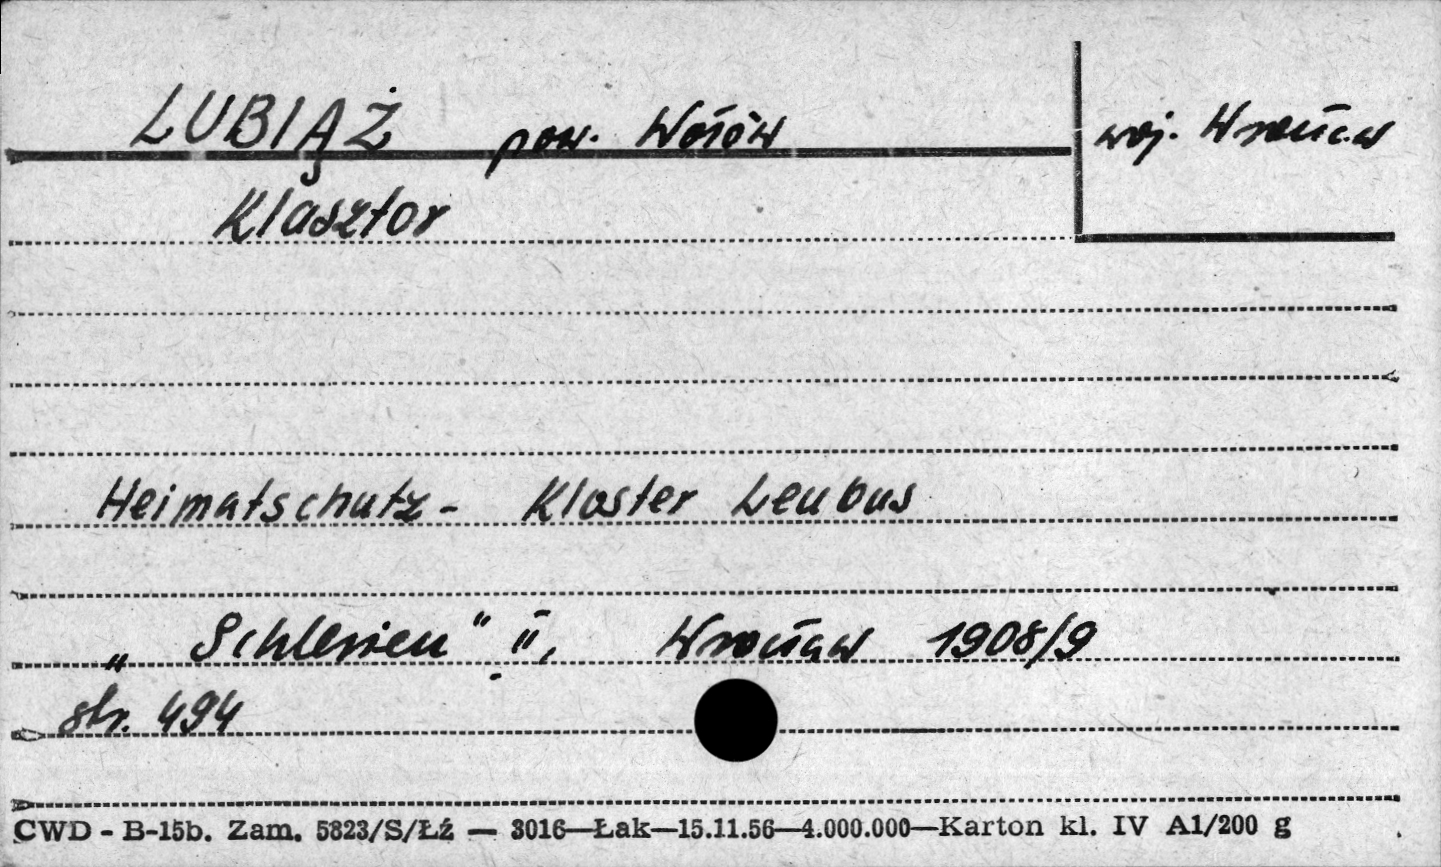 LUBIĄŻ pow. Wołów woj. Wrocław
Klasztor
Heimatschutz - Kloster Leubus
„ Schlesien " II, Wrocław 1908/9
str. 494
CWD - B-15b. Zam. 5823/S/Łź — 3016—Łak—15.11.56—4.000.000—Karton kl. IV A1/200 g